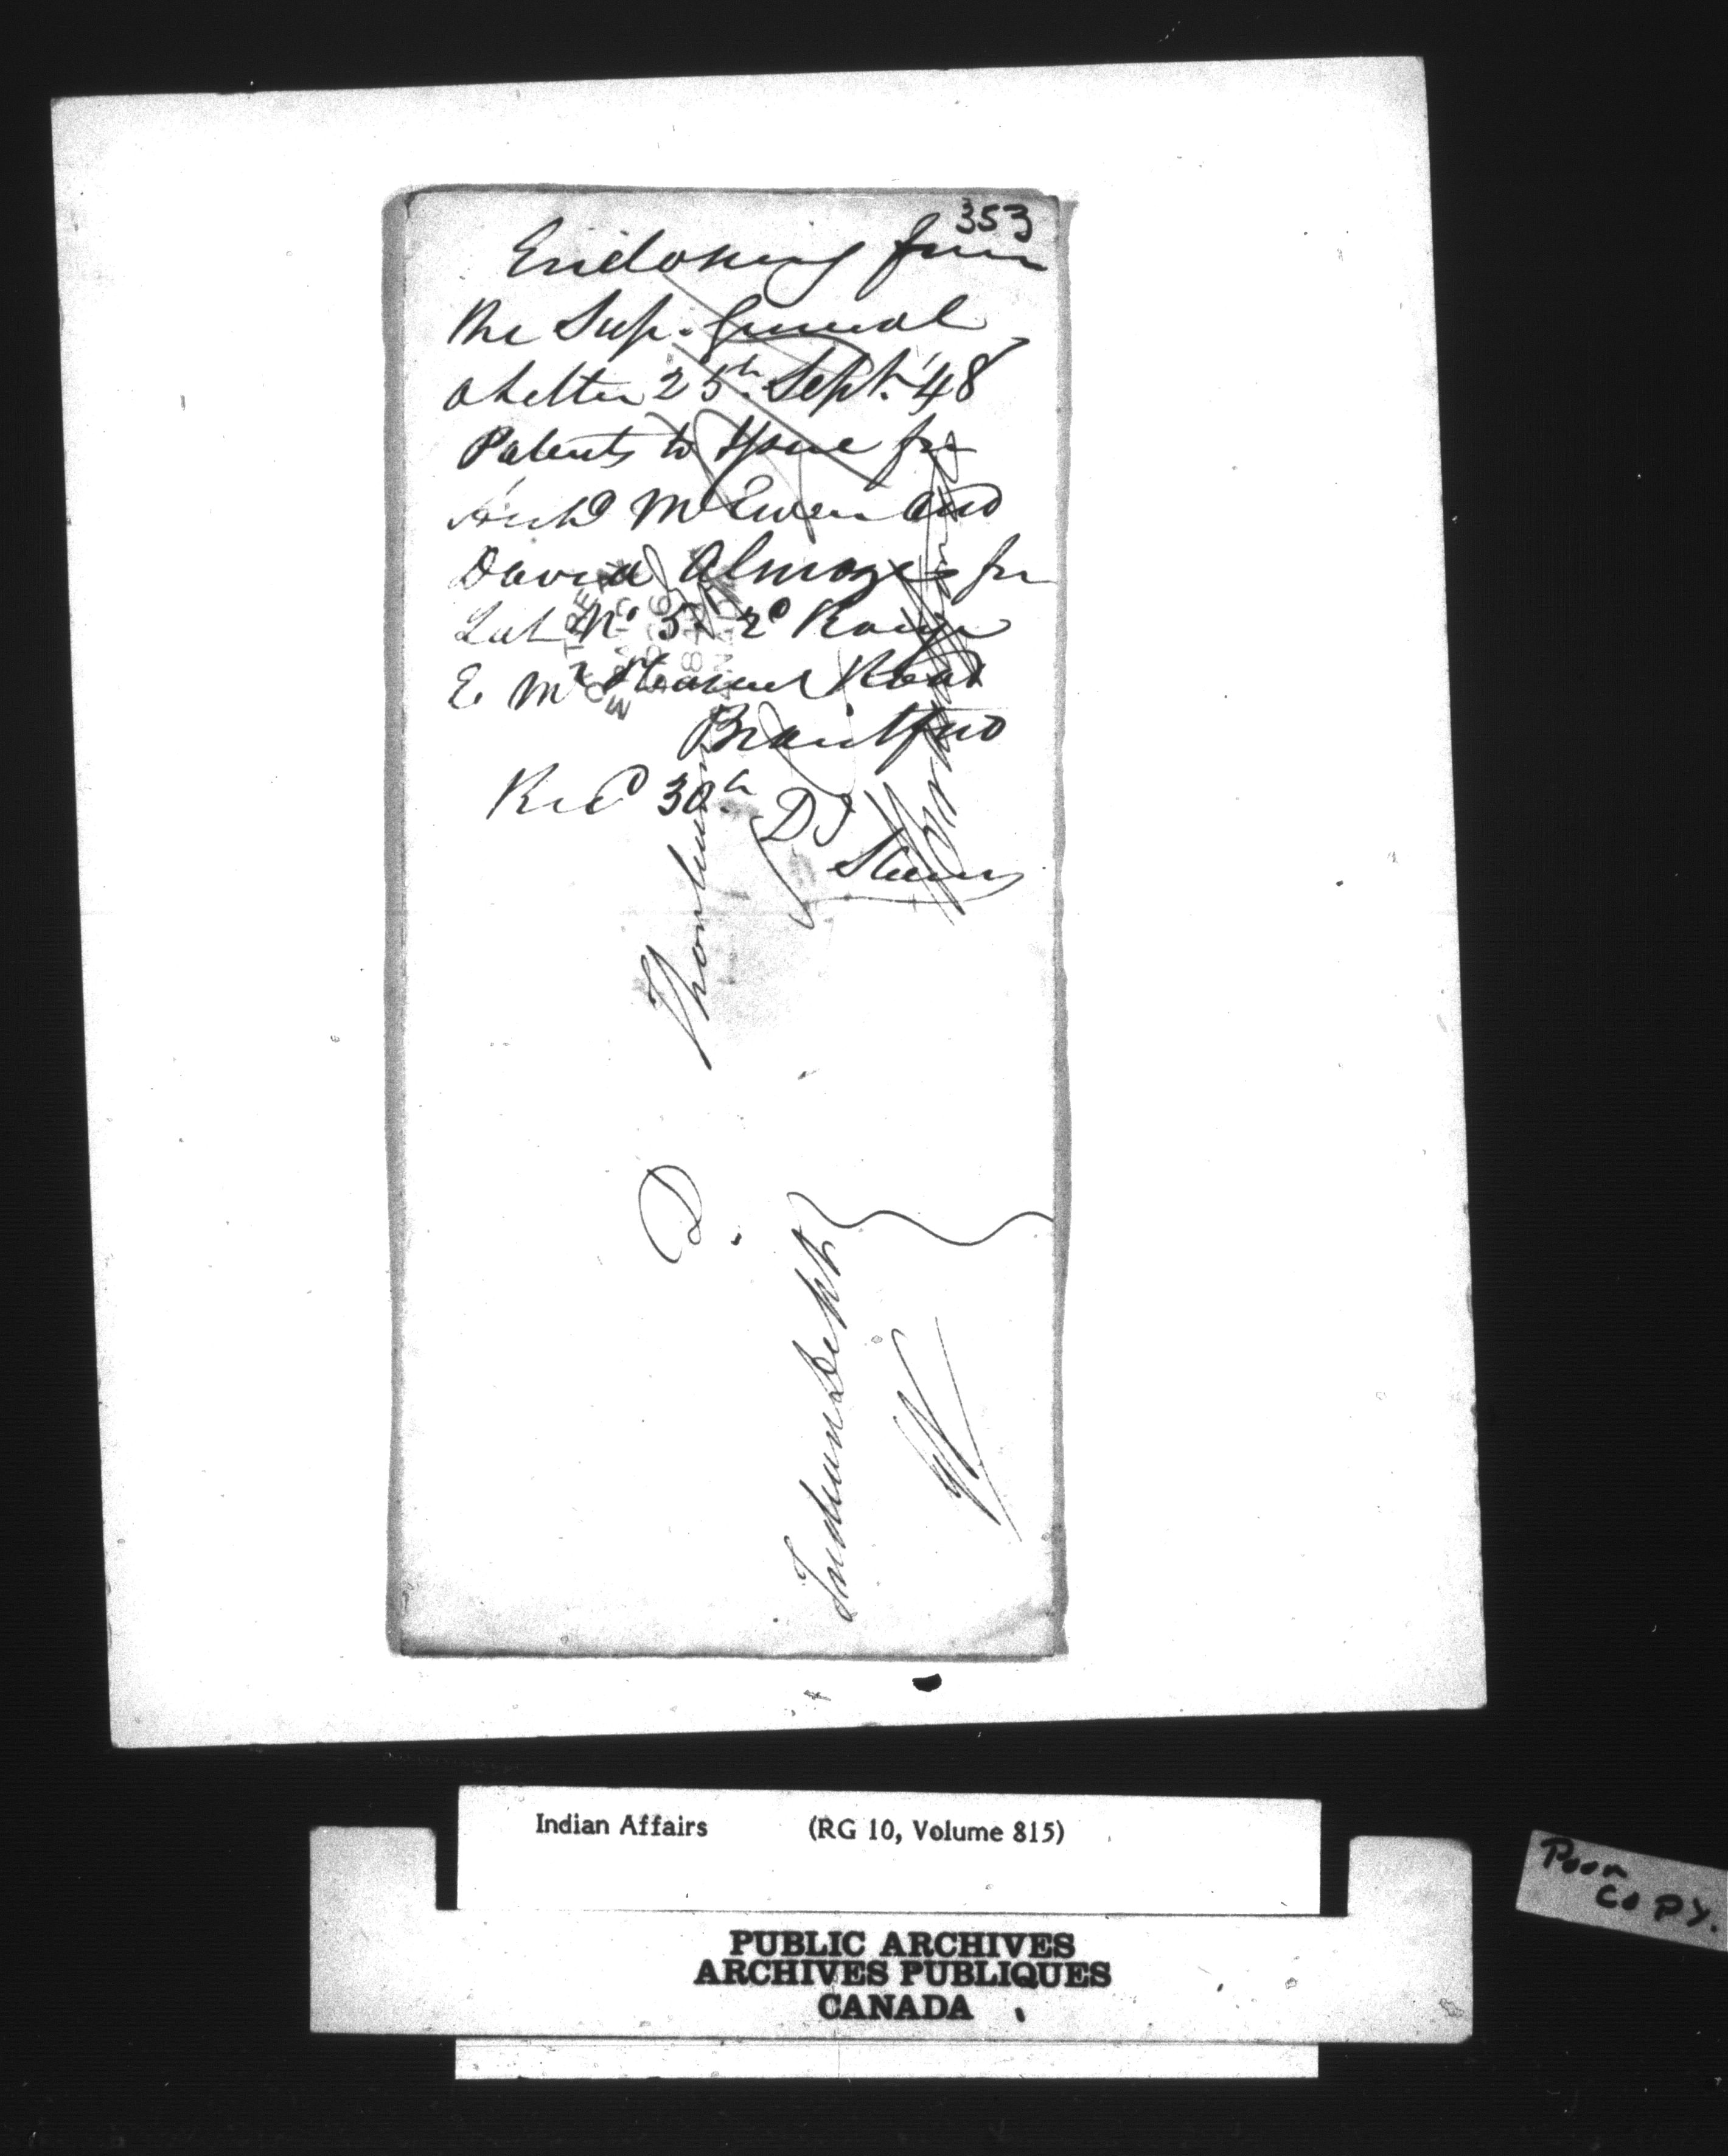 353
Enclosing from
the Sup. General
a letter 25th Sept. '48
Patents to Issue for
Archd McEwen and
David Almoge for
Lot No 5. 2d Range
E. Mt Pleasant Road
Brantford
Recd 30th
D
Thorburn
D.
Indian Dept
Indian Affairs (RG 10, Volume 815)
PUBLIC ARCHIVES
ARCHIVES PUBLIQUES
CANADA
Poor
COPY.